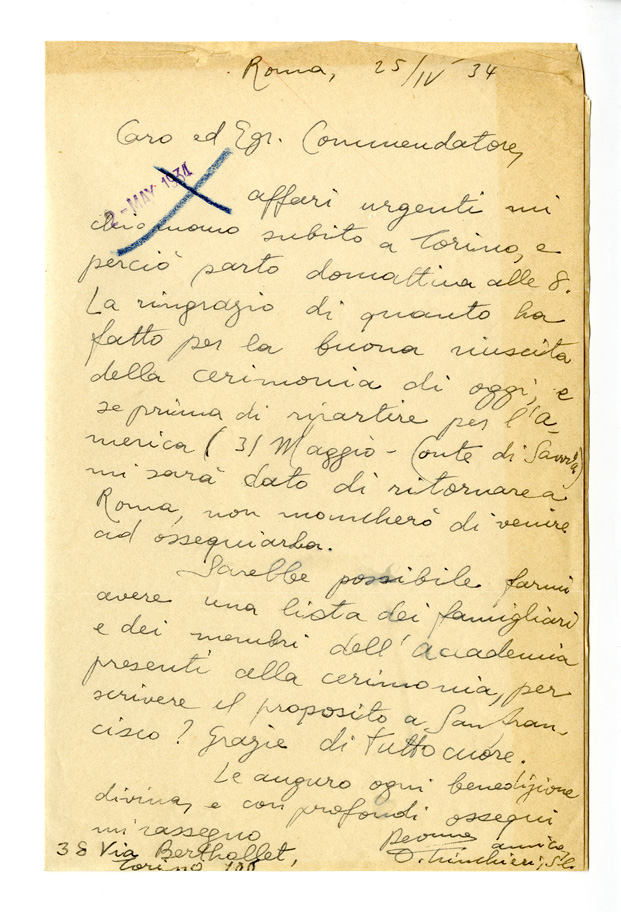 Roma, 25/IV 34
Caro ed Egr. Commendatore,
2-MAY 1934
affari urgenti mi
chiamano subito a Torino, e
perciò parto domattina alle 8.
La ringrazio di quanto ha
fatto per la buona riuscita
della cerimonia di oggi, e
se prima di ripartire per l'A-
merica (31 Maggio - Conte di Savoia)
mi sarà dato di ritornare a
Roma, non mancherò di venire
ad ossequiarla.
Sarebbe possibile farmi
avere una lista dei famigliari
e dei membri dell'Accademia
presenti alla cerimonia, per
scrivere il proposito a San Fran-
cisco? Grazie di tutto cuore.
Le auguro ogni benedizione
divina, e con profondi ossequi
mi rassegno
amico,
38 Via Berthollet,
D. Trinchieri,
Torino